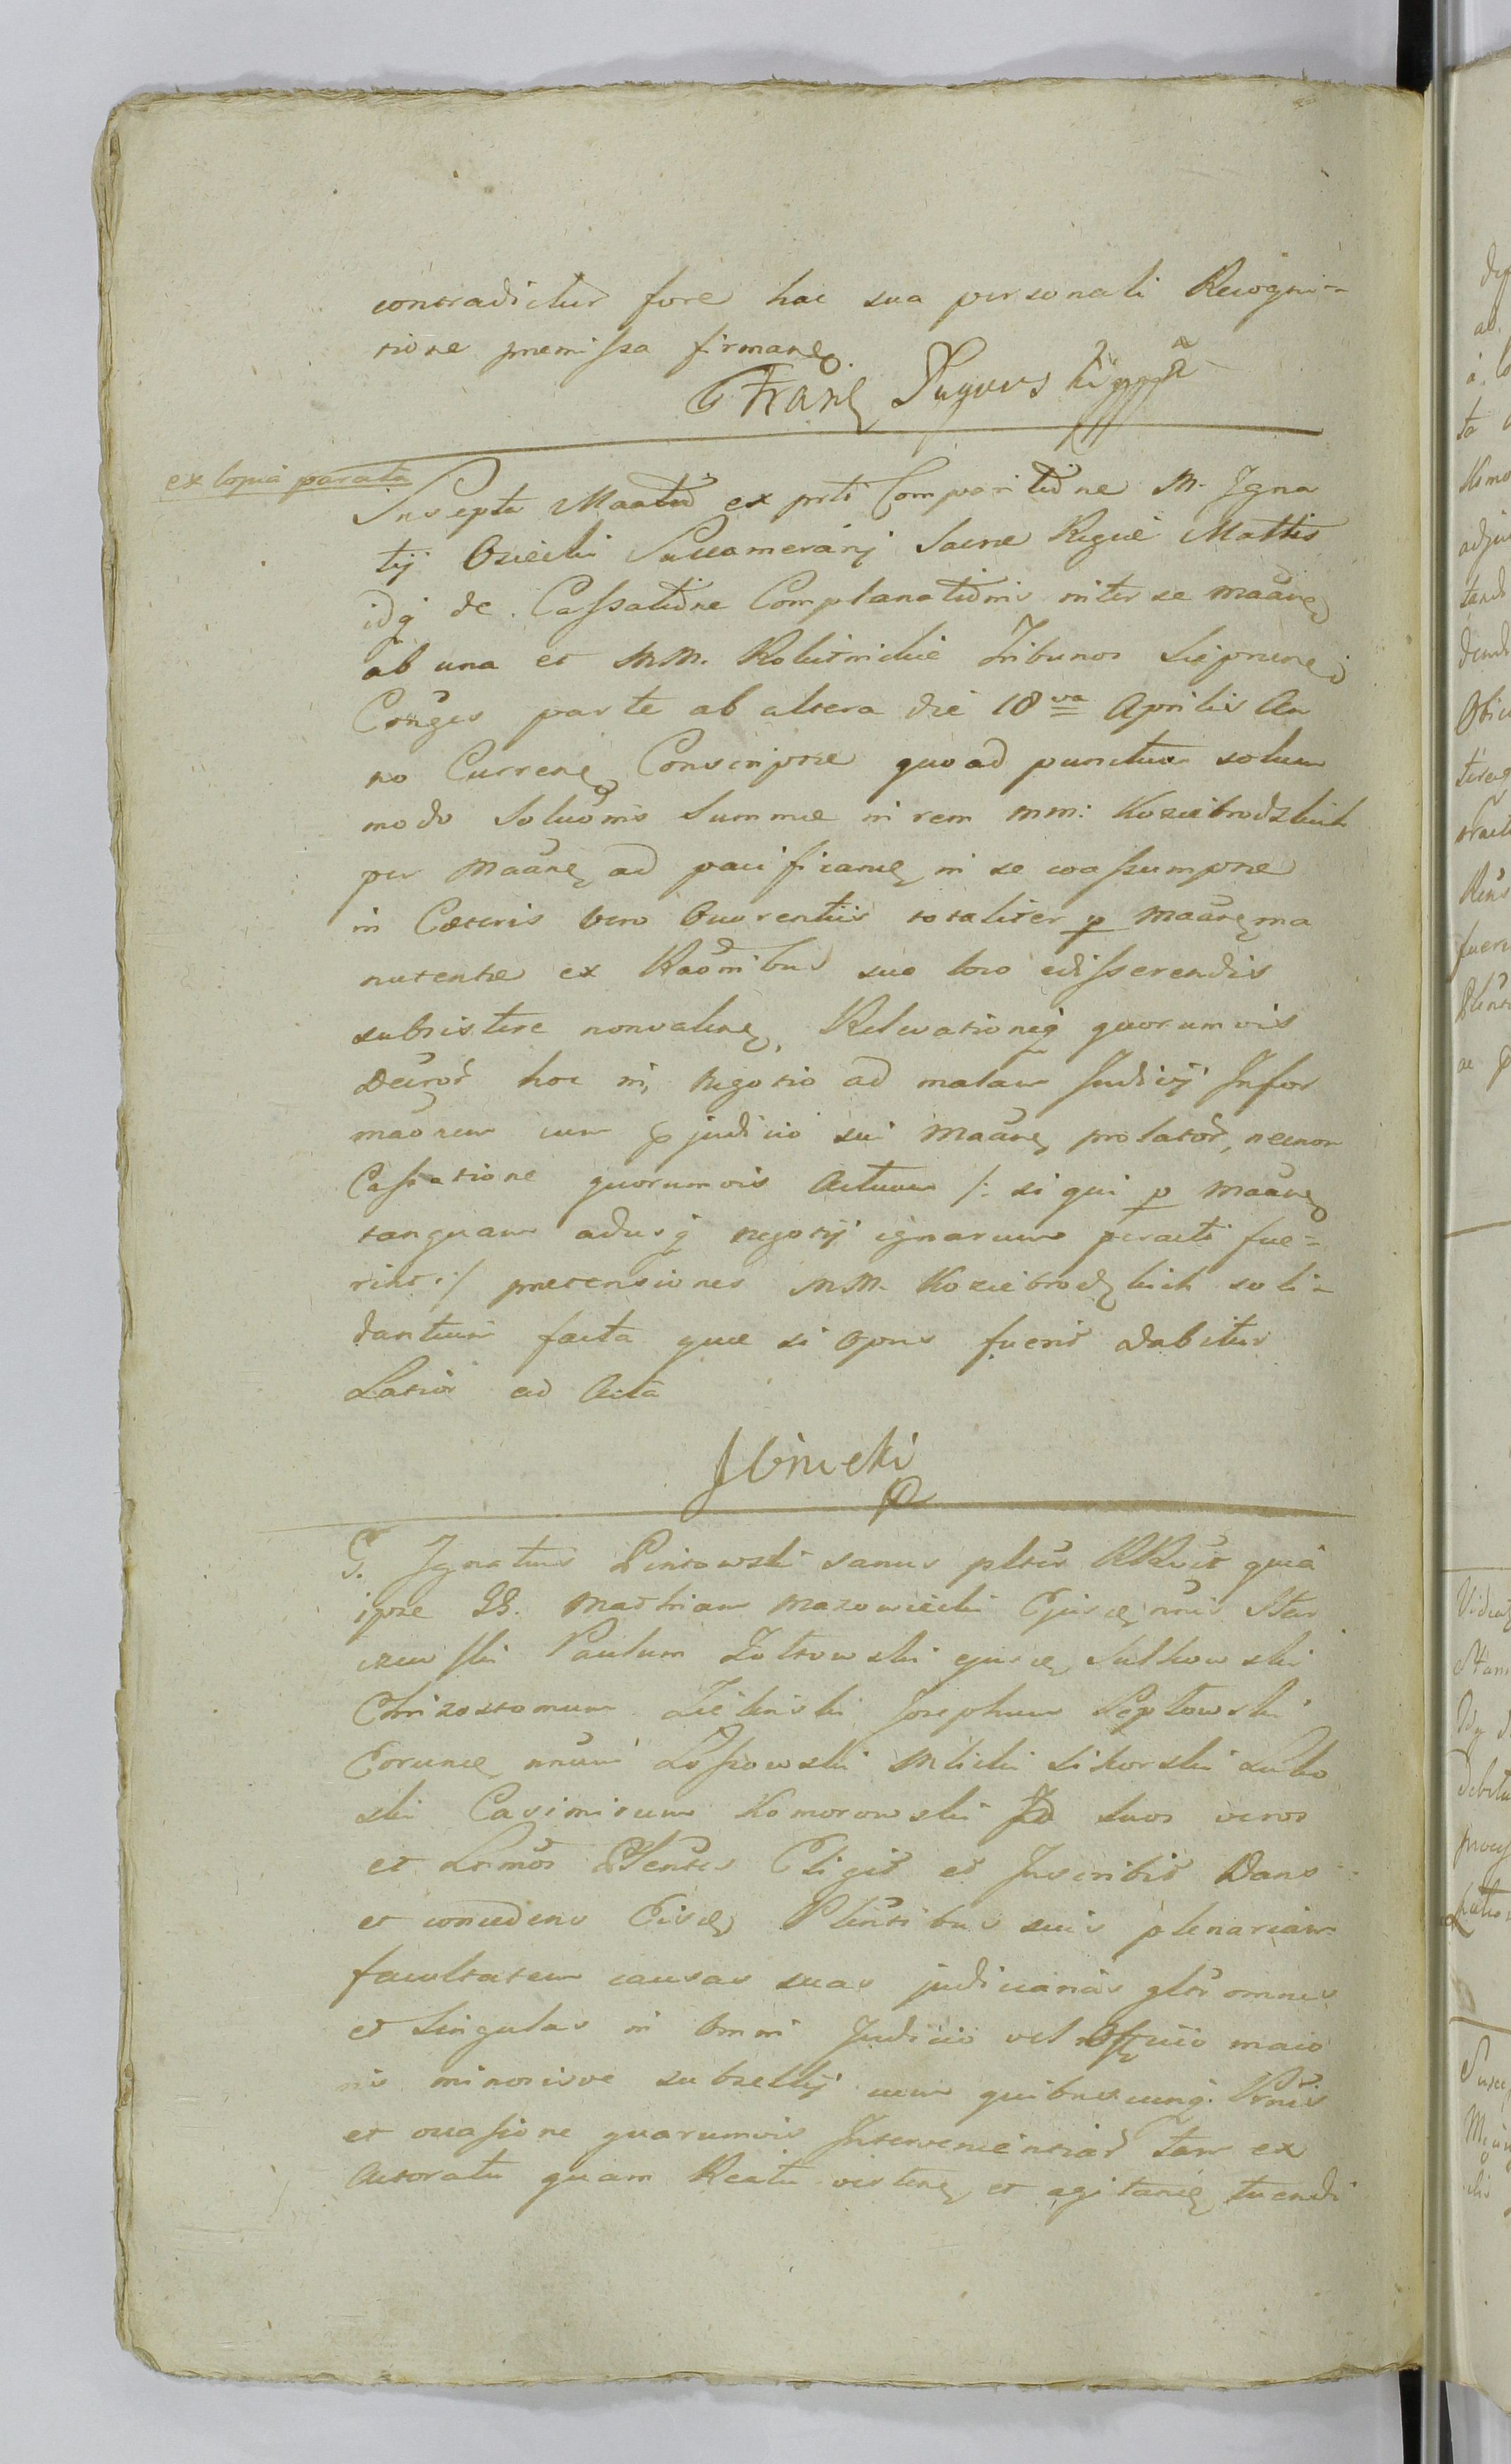 contradictur fore hac sua personali Recogni-
tione premissa firmane
Franc
ex Copia parata
Suscepta Maatur ex prti Comparitione M. Igna
tij Osiecki Succamerarij Sacrae Regie Mattis
idq de Cassatione Complanationis inter se maane
ab una et MM. Tribunos Sieprcne
Conges parte ab altera die 18va Aprilis An
no Currene Conscripte quoad punctum solum
modo Solutionis Summe in rem MM: Koziebrodzkich
per Maane ad pacificane in se coassumpte
in Cæteris vero totaliter p Maane ma
nutente ex Raonibus suo loco edisserendis
subsistere nonvalene, Relevationiq quorumvis
Decror hoc in negotio ad malam Judicij Infor
maonem cum pjudicio sui Maane prolator, necnon
Cassatione quorumvis Actuum /: si qui p Maane
tanquam adusq negotij ignarum peracti fue=
rint :/ pretensiones MM. Koziebrodzkich soli-
dantium facta que si opus fuerit dabitur
Latior ad Acta
G. Ignatius sanus RRcit quia
ipse GG. Mathiam Mazowiecki Ejusc nnis Star
czewski Paulum Zoltowski ejusc Sulkowski
Chrizostomum Zielinski Josephum Septowski
Eorunc nnum Lossowski Mlicki Sikorski Lubo
ski Casimirum Komorowski suos veros
et Lrmos Plentes Eligit et Inscribit Dans
et concedens Eisd Plentibus suis plenariam
facultatem causas suas judiciarias gltr omnes
et singulas in omni Judicio vel Officio maio
ris minorisve subsellij cum quibuscunq. Prnis
et occasione quarumvis Intervenientiar tam ex
Actoratu quam Reatu vertene et agitane tuendi